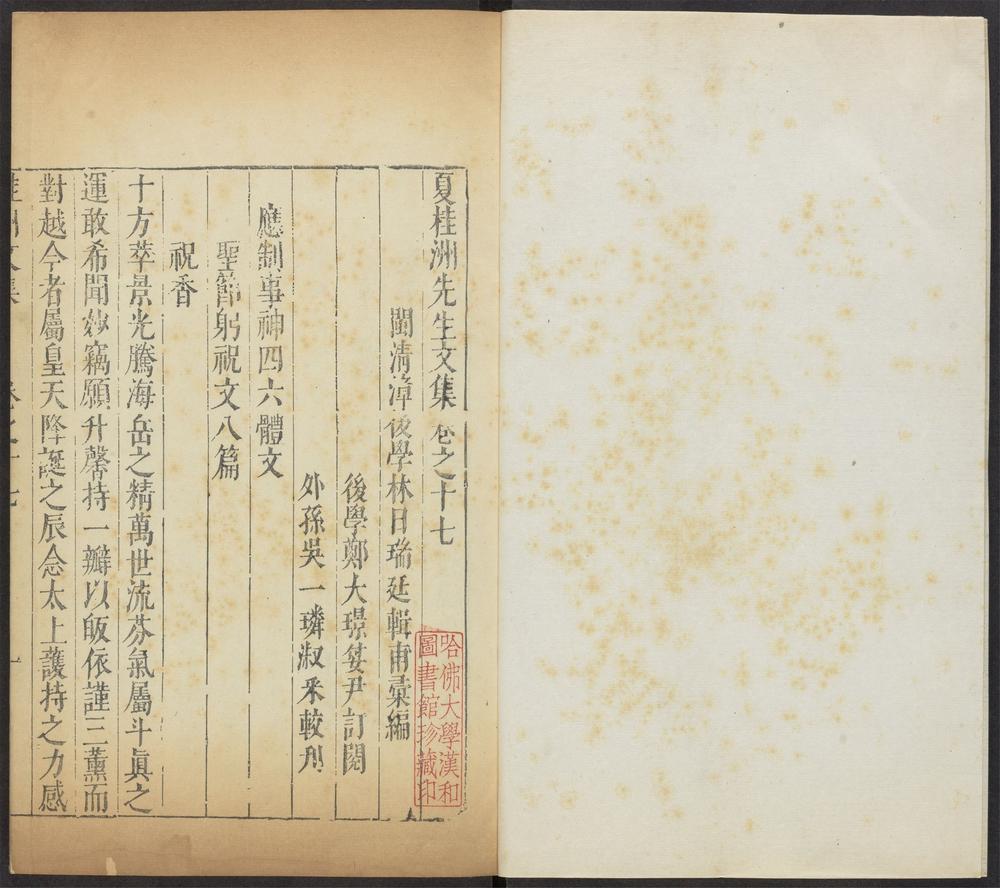 夏桂洲先生文集卷之十七
閩清漳後學林日瑞廷輯甫彙編
後學鄭大璟筊尹訂閱
外孫吳一璘淑釆較刋
應制事神四六體文
聖節躬祝文八篇
祝香
十方萃景光騰海岳之精萬世流芬氣屬斗眞之
運敢希聞妙竊願升馨持一瓣以皈依謹三薰而
對越今者屬皇天降誕之辰念太上護持之力感
桂洲文集 卷之十七 一
哈佛大學漢和
圖書館珍藏印